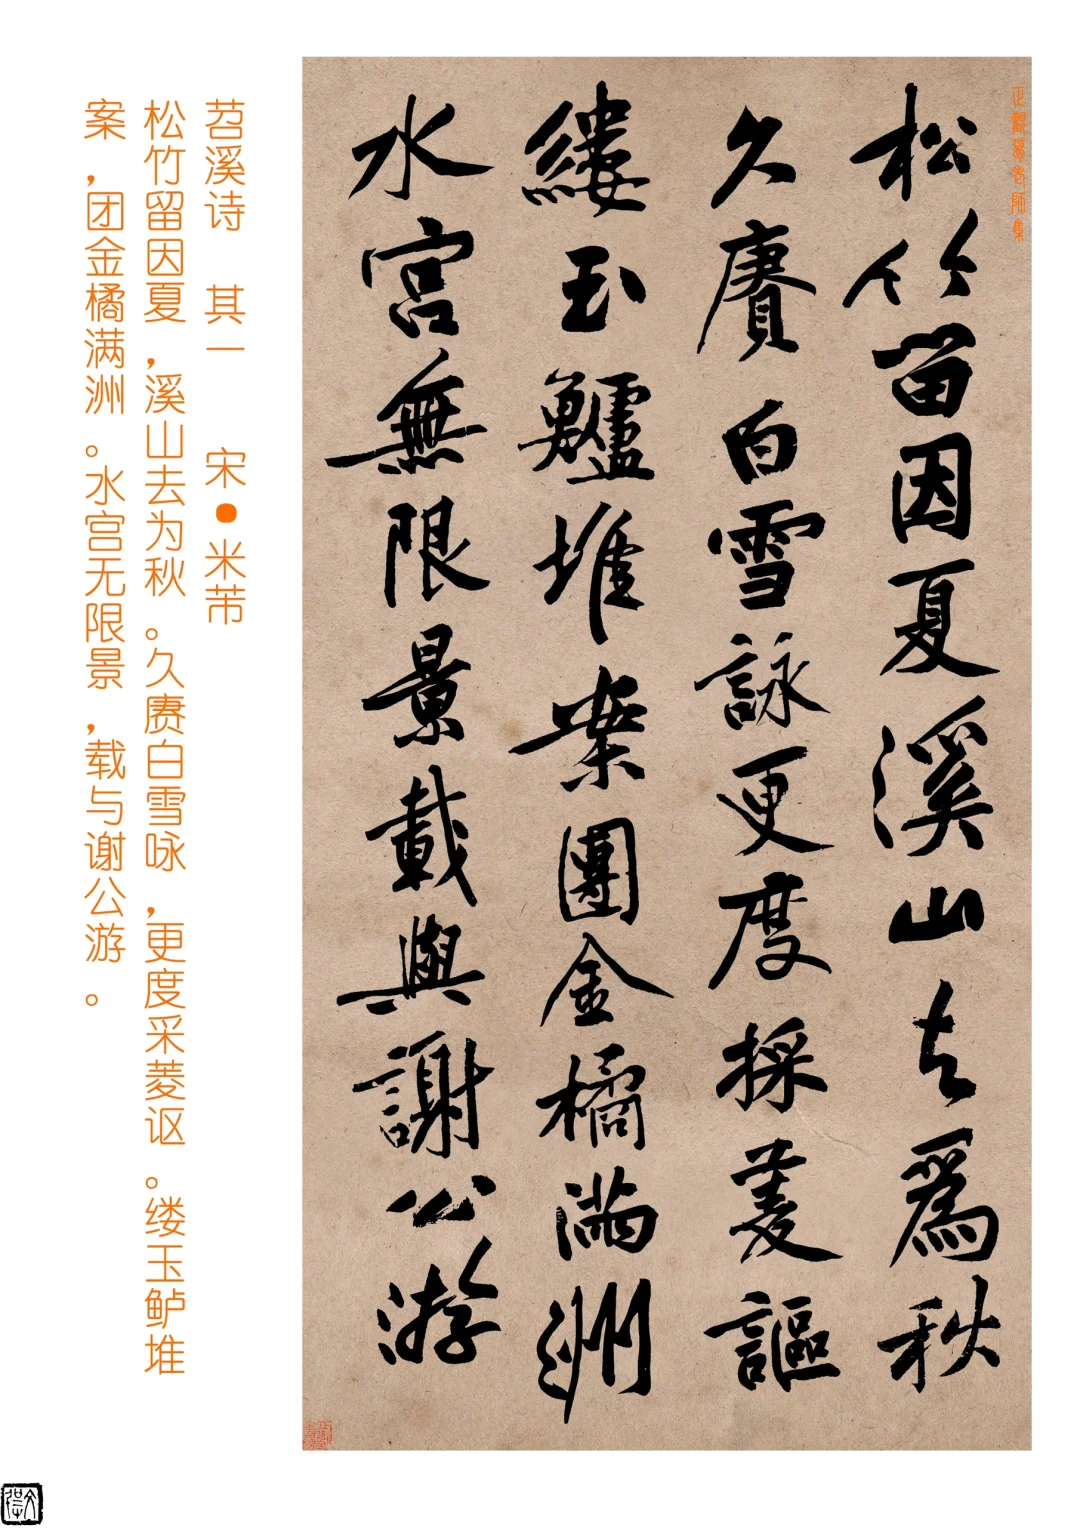 松竹留因夏溪山去為秋
久賡白雪詠更度採菱謳
縷玉鱸堆案團金橘滿洲
水宮無限景載與謝公游
苕溪诗 其一 宋•米芾
松竹留因夏，溪山去为秋。久赓白雪咏，更度采菱讴。缕玉鲈堆
案，团金橘满洲。水宫无限景，载与谢公游。